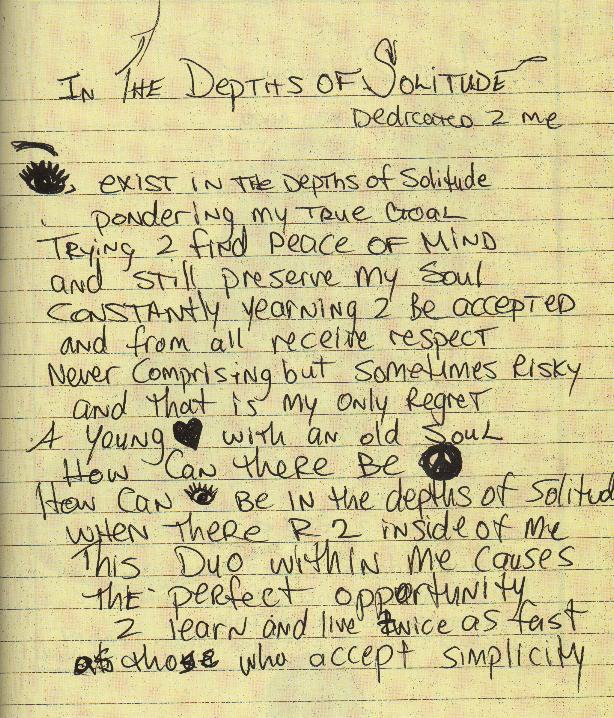 IN THE DEPTHS OF SOLITUDE
Dedicated 2 me
👁 exist in the Depths of Solitude
pondering my True Goal
Trying 2 find peace of Mind
and still preserve my Soul
CONSTANTLY yearning 2 Be accepted
and from all receive respect
Never Comprising but sometimes Risky
and that is my only Regret
A Young ♥ with an old Soul
How Can there Be ☮
How Can 👁 Be in the depths of Solitud
when there R 2 inside of me
This Duo within me causes
the perfect opportunity
2 learn and live twice as fast
as those who accept simplicity